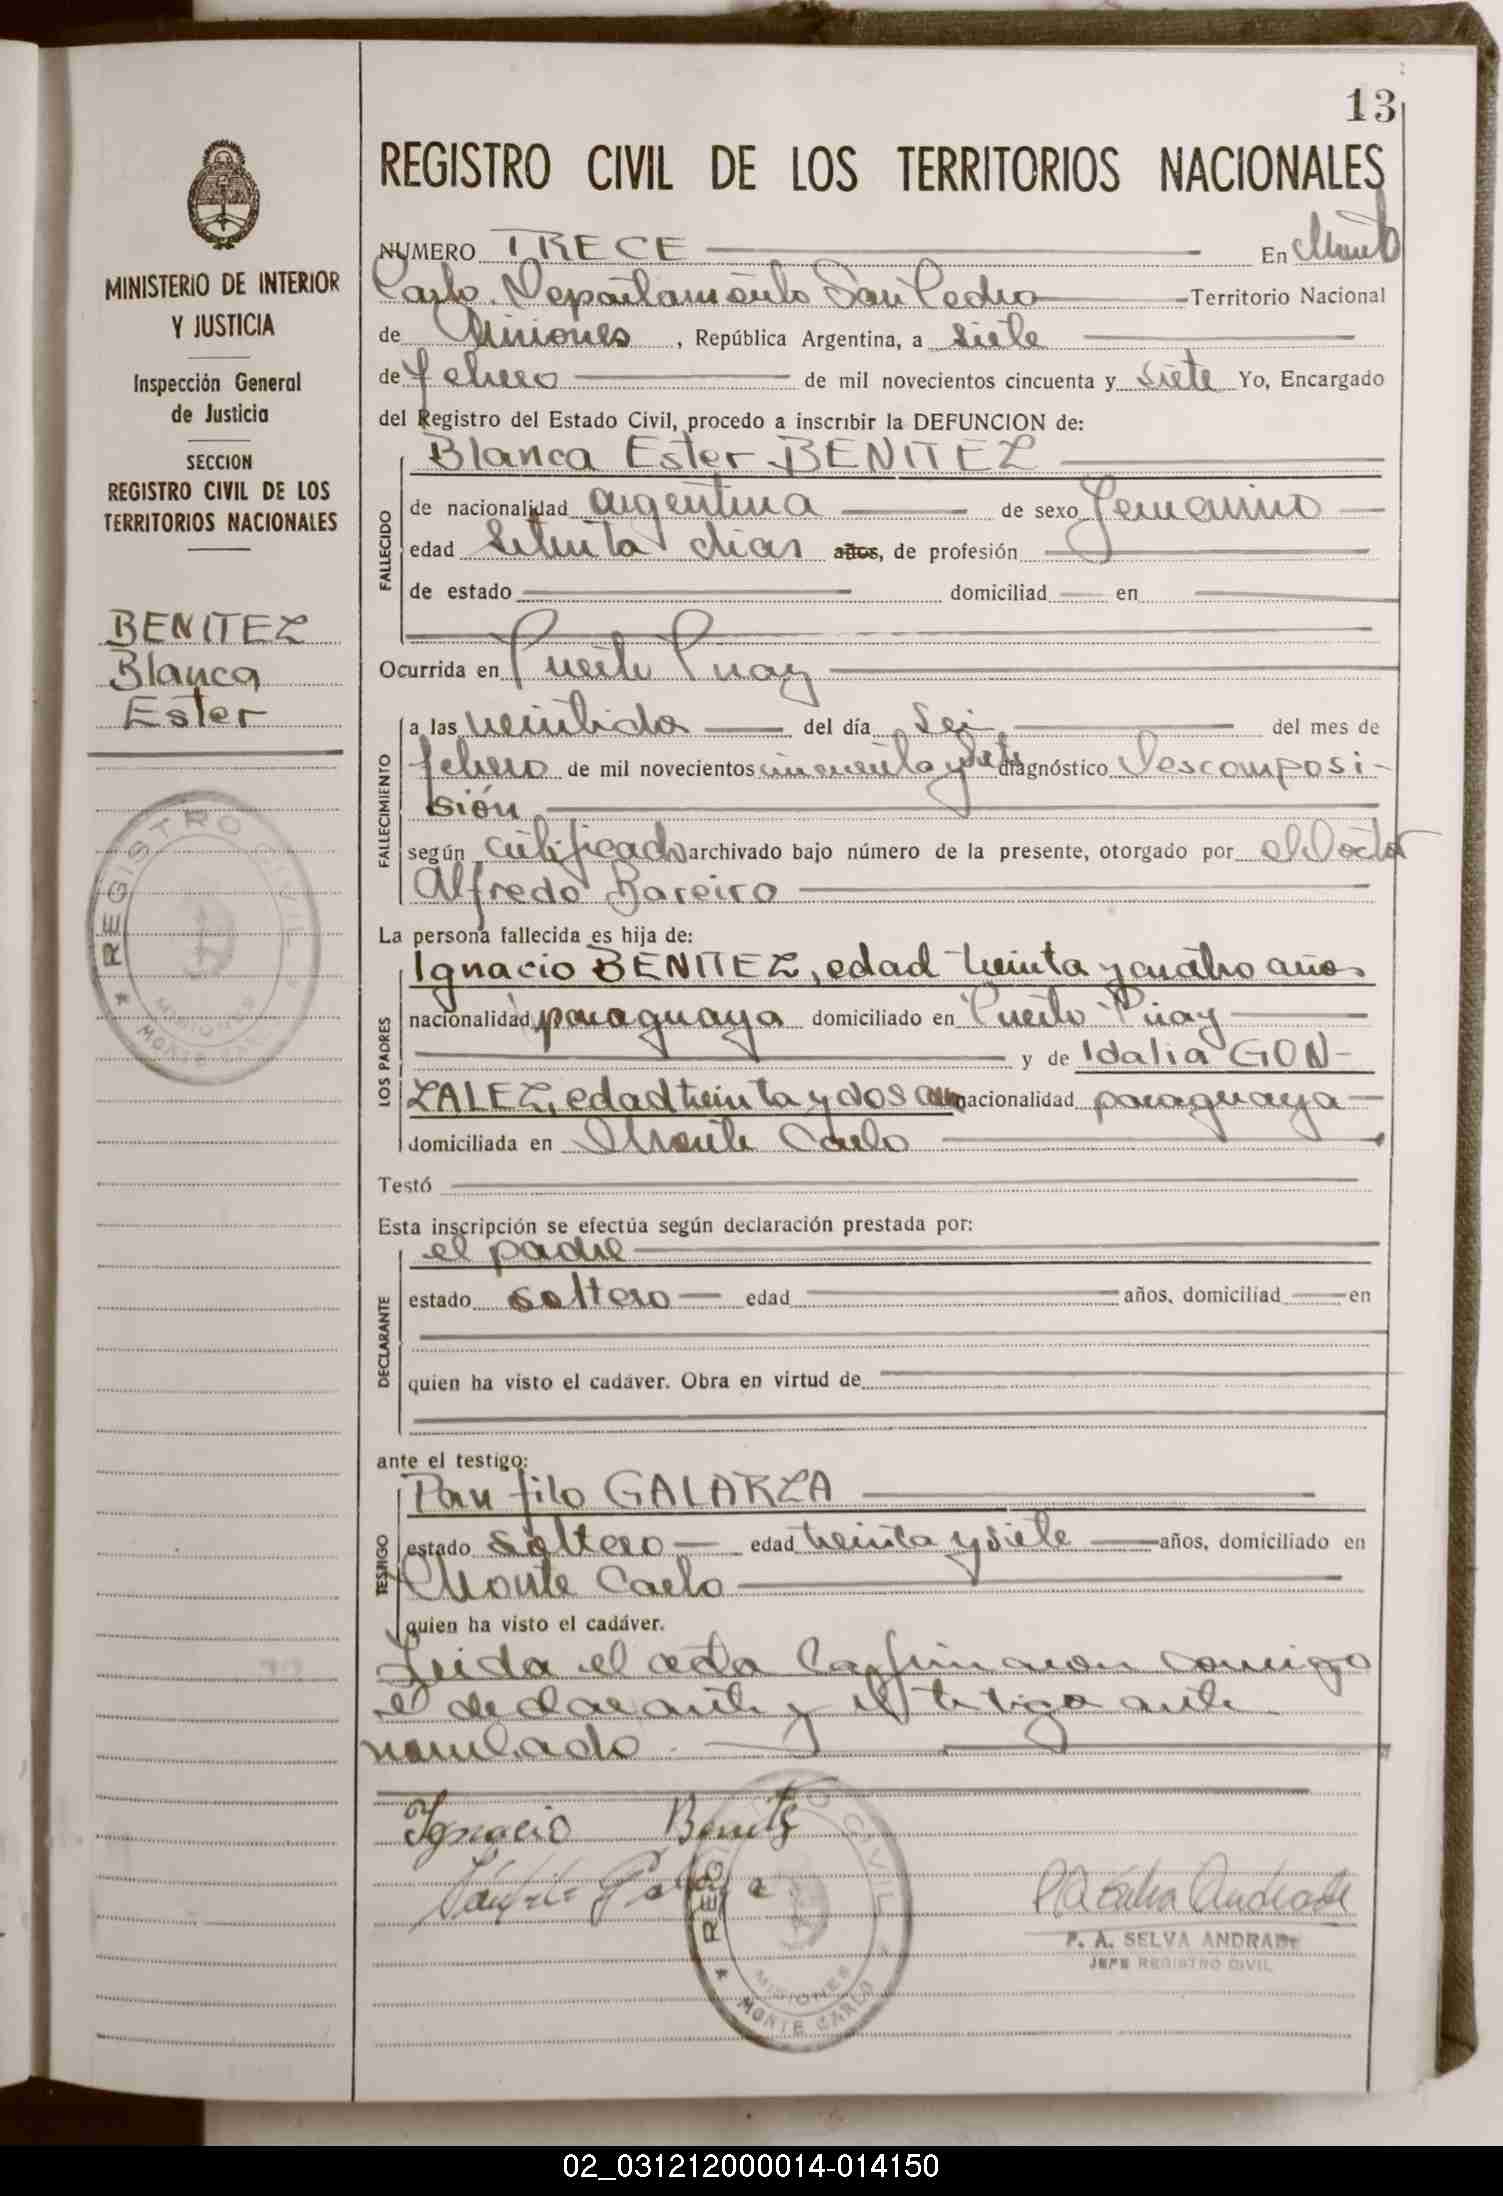 13
REGISTRO CIVIL DE LOS TERRITORIOS NACIONALES
MINISTERIO DE INTERIOR
Y JUSTICIA
Inspección General
de Justicia
SECCION
REGISTRO CIVIL DE LOS
TERRITORIOS NACIONALES
BENITEZ
Blanca
Ester
REGISTRO CIVIL
MISIONES
* MONTE CARLO
NUMERO TRECE En Monte
Carlo. Departamento San Pedro Territorio Nacional
de Misiones, República Argentina, a siete
de febrero de mil novecientos cincuenta y siete Yo, Encargado
del Registro del Estado Civil, procedo a inscribir la DEFUNCION de:
Blanca Ester BENITEZ
FALLECIDO
de nacionalidad argentina de sexo femenino
edad setenta dias años, de profesión
de estado domiciliad en
Ocurrida en Puerto Piray
FALLECIMIENTO
a las veintidos del día seis del mes de
febrero de mil novecientos cincuenta y siete diagnóstico Descomposi-
sión
según certificado archivado bajo número de la presente, otorgado por el Doctor
Alfredo Bareiro
La persona fallecida es hija de:
LOS PADRES
Ignacio BENITEZ, edad treinta y cuatro años
nacionalidad paraguaya domiciliado en Puerto Piray
y de Idalia GON-
ZALEZ, edad treinta y dos años nacionalidad paraguaya
domiciliada en Monte Carlo
Testó
Esta inscripción se efectúa según declaración prestada por:
DECLARANTE
el padre
estado soltero edad años, domiciliad en
quien ha visto el cadáver. Obra en virtud de
ante el testigo:
TESTIGO
Panfilo GALARZA
estado soltero edad treinta y siete años, domiciliado en
Monte Carlo
quien ha visto el cadáver.
Leida el acta la firmaron conmigo
el declarante y el testigo ante
nombrado
Ignacio Benitez
REGISTRO CIVIL
MISIONES
* MONTE CARLO
P. A. SELVA ANDRADE
JEFE REGISTRO CIVIL
02_031212000014-014150